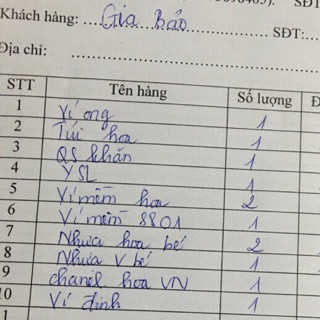 SĐT
Khách hàng: Gia Bảo SĐT:
Địa chỉ:
STT Tên hàng Số lượng Đ
1 Ví ong 1
2 Túi hoa 1
3 QS khăn 1
4 YSL 1
5 Ví mềm hoa 2
6 Ví mềm 8801 1
7 Nhựa hoa bé 2
8 Nhựa V bé 1
9 chanel hoa VN 1
10 Ví đinh 1